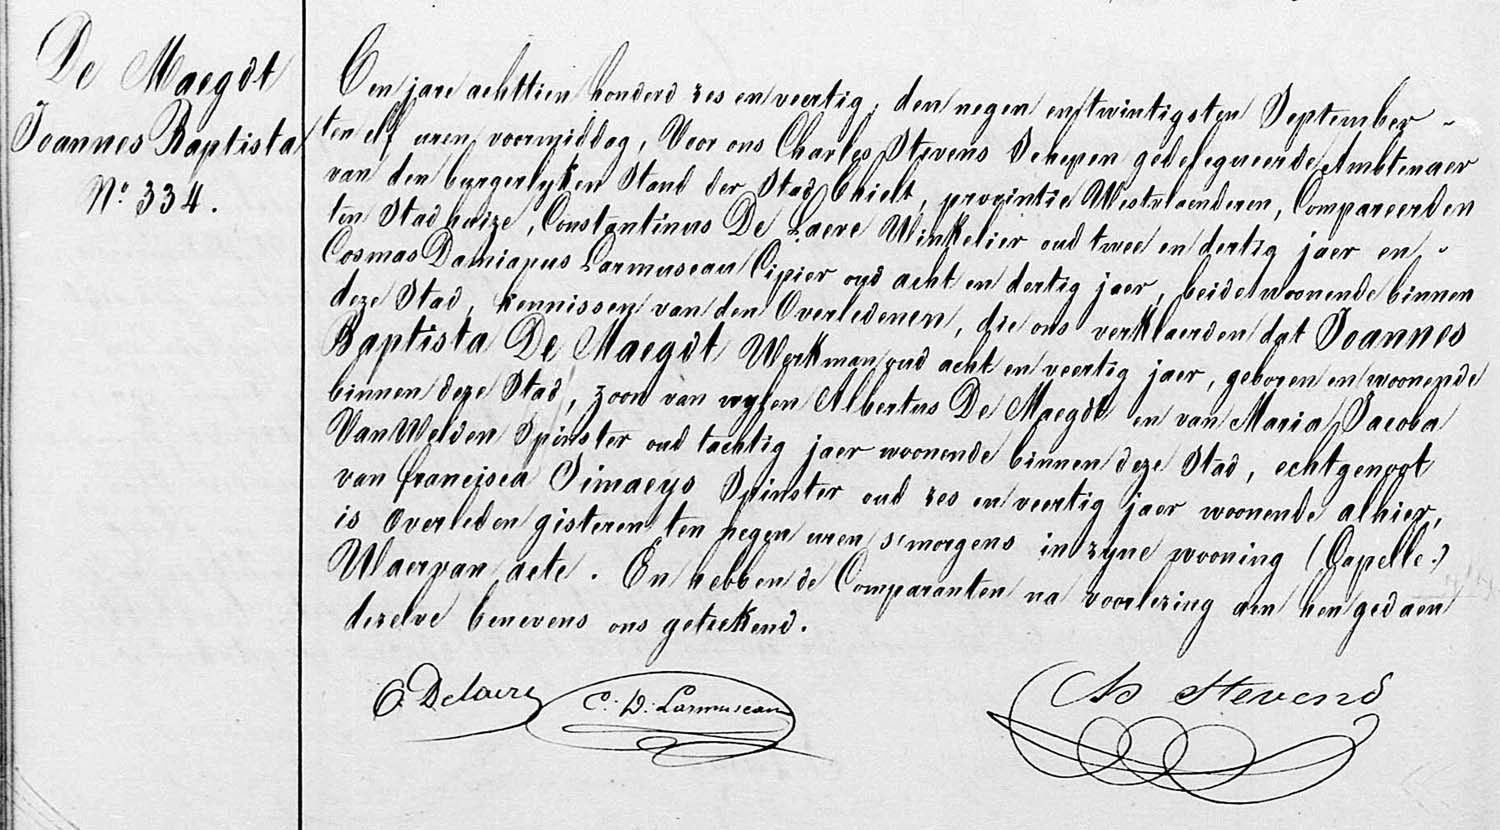 De Maegdt
Joannes Baptista
N.º 334.
Den jare achttien honderd zes en veertig, den negen en twintigsten September -
ten elf uren voormiddag, Voor ons Charles Stevens Schepen gedelegueerde Ambtenaer
van den burgerlyken Stand der Stad Thielt, provintie Westvlaenderen, Compareerden
ten Stadhuize, Constantinus De Laere Winkelier oud twee en dertig jaer en -
Cosmas Damianus Larmuseau Cipier oud acht en dertig jaer, beide woonende binnen
deze Stad, kennissen van den Overledenen, die ons verklaerden dat Joannes
Baptista De Maegdt Werkman oud acht en veertig jaer, geboren en woonende
binnen deze Stad, zoon van wylen Albertus De Maegdt en van Maria Jacoba
Van Welden Spinster oud tachtig jaer woonende binnen deze Stad, echtgenoot
van Francisca Simaeys Spinster oud zes en veertig jaer woonende alhier,
is Overleden gisteren ten negen uren s'morgens in zyne wooning (Capelle.)
Waervan acte. En hebben de Comparanten na voorlezing aen hen gedaen
dezelve benevens ons geteekend.
C. Delaere C. D. Larmuseau Ch Stevens